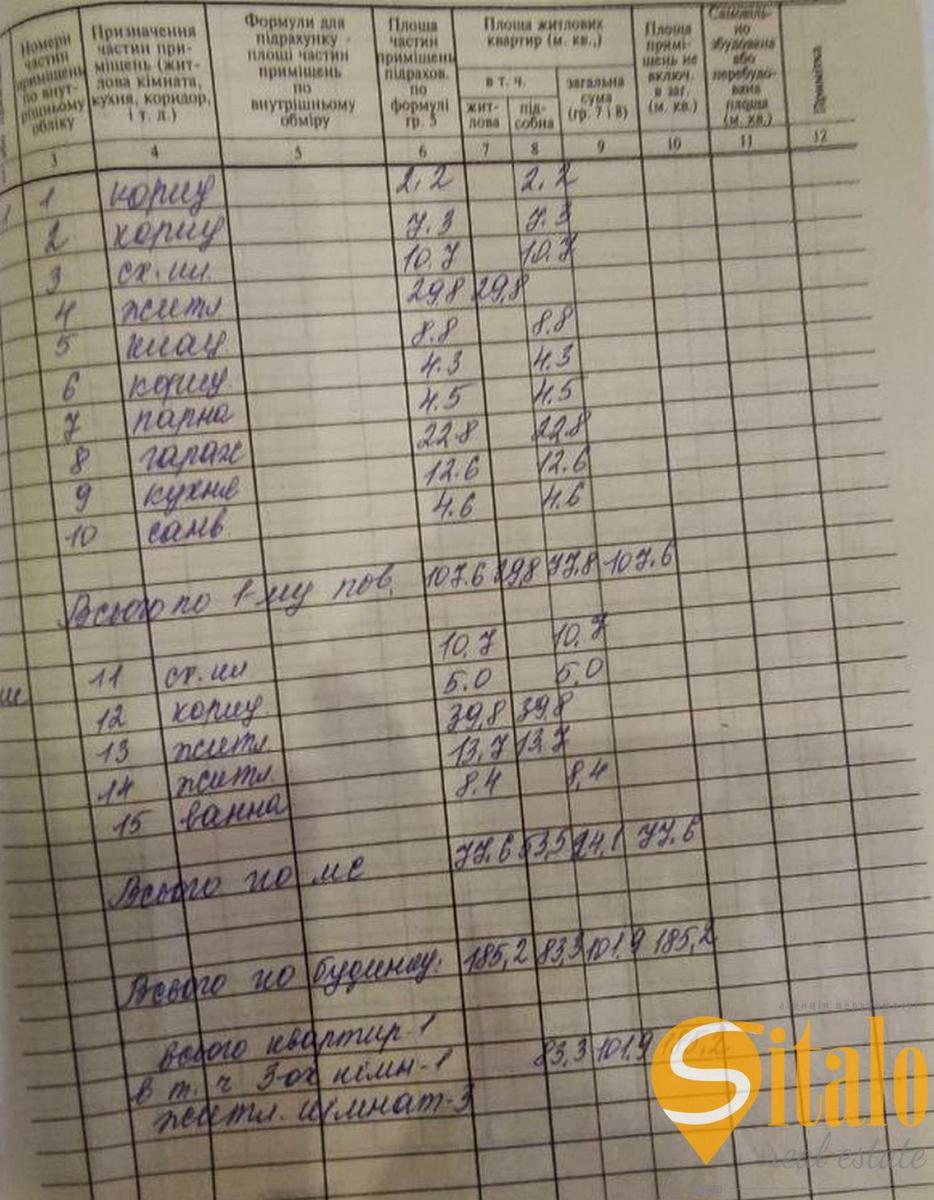 Номери частин приміщень по внутрішньому обліку
Призначення частин приміщень (житлова кімната, кухня, коридор, і т. д.)
Формули для підрахунку площі частин приміщень по внутрішньому обміру
Площа частин приміщень підрахов. по формулі гр. 5
Площа житлових квартир (м. кв.,)
в т. ч.
житлова
підсобна
загальна сума (гр. 7 і 8)
Площа приміщень не включ. в заг. (м. кв.)
Самовільно збудована або перебудована площа (м. кв.)
Примітка
3 4 5 6 7 8 9 10 11 12
1 1 кориу 2.2 2.2
2 кориу 7.3 7.3
3 сх.кл. 10.7 10.7
4 житл 29.8 29,8
5 8.8 8.8
6 кориу 4.3 4.3
7 парна 4.5 4.5
8 гараж 22.8 22.8
9 кухня 12.6 12.6
10 санв. 4.6 4.6
Всього по 1-му пов. 107.6 29,8 77,8 107.6
11 сх.кл 10.7 10.7
12 кориу. 5.0 5,0
13 житл 39,8 39,8
14 житл 13,7 13,7
15 ванна 8.4 8,4
Всього по мс 77,6 53,5 24,1 77,6
Всього по будинку: 185,2 83,3 101,9 185,2
всього квартир-1 83,3 101,9
в т. ч 3-ох кімн-1
житл. кімнат-3
агенція нерухомості
Sitalo
real estate